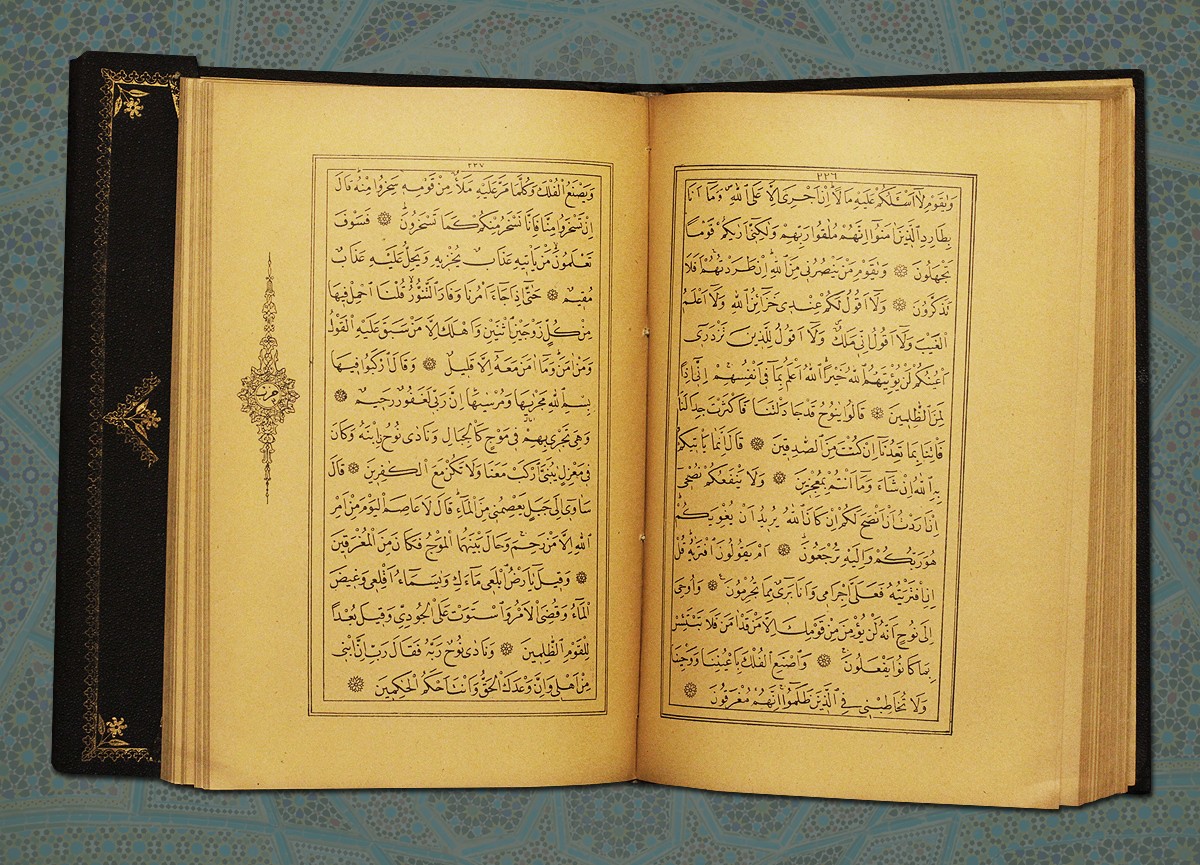 ٢٢٦
وَيَاقَوْمِ لَٓا اَسْـَٔلُكُمْ عَلَيْهِ مَالًا اِنْ اَجْرِىَ اِلَّا عَلَى اللّٰهِ وَمَٓا اَنَا۬
بِطَارِدِ الَّذٖينَ اٰمَنُوا اِنَّهُمْ مُلَاقُوا رَبِّهِمْ وَلٰكِنّٖٓى اَرٰيكُمْ قَوْمًا
تَجْهَلُونَ ۞ وَيَاقَوْمِ مَنْ يَنْصُرُنٖى مِنَ اللّٰهِ اِنْ طَرَدْتُهُمْ اَفَلَا
تَذَكَّرُونَ ۞ وَلَٓا اَقُولُ لَكُمْ عِنْدٖى خَزَٓائِنُ اللّٰهِ وَلَٓا اَعْلَمُ
الْغَيْبَ وَلَٓا اَقُولُ اِنّٖى مَلَكٌ وَلَٓا اَقُولُ لِلَّذٖينَ تَزْدَرٖٓى
اَعْيُنُكُمْ لَنْ يُؤْتِيَهُمُ اللّٰهُ خَيْرًا اَللّٰهُ اَعْلَمُ بِمَا فٖٓى اَنْفُسِهِمْ اِنّٖٓى اِذًا
لَمِنَ الظَّالِمٖينَ ۞ قَالُوا يَانُوحُ قَدْ جَادَلْتَنَا فَاَكْثَرْتَ جِدَالَنَا
فَاْتِنَا بِمَا تَعِدُنَٓا اِنْ كُنْتَ مِنَ الصَّادِقٖينَ ۞ قَالَ اِنَّمَا يَاْتٖيكُمْ
بِهِ اللّٰهُ اِنْ شَٓاءَ وَمَٓا اَنْتُمْ بِمُعْجِزٖينَ ۞ وَلَا يَنْفَعُكُمْ نُصْحٖٓى
اِنْ اَرَدْتُ اَنْ اَنْصَحَ لَكُمْ اِنْ كَانَ اللّٰهُ يُرٖيدُ اَنْ يُغْوِيَكُمْ
هُوَ رَبُّكُمْ وَاِلَيْهِ تُرْجَعُونَ ۞ اَمْ يَقُولُونَ افْتَرٰيهُ قُلْ
اِنِ افْتَرَيْتُهُ فَعَلَىَّ اِجْرَامٖى وَاَنَا۬ بَرٖٓىءٌ مِمَّا تُجْرِمُونَ ۞ وَاُوحِىَ
اِلٰى نُوحٍ اَنَّهُ لَنْ يُؤْمِنَ مِنْ قَوْمِكَ اِلَّا مَنْ قَدْ اٰمَنَ فَلَا تَبْتَئِسْ
بِمَا كَانُوا يَفْعَلُونَ ۞ وَاصْنَعِ الْفُلْكَ بِاَعْيُنِنَا وَوَحْيِنَا
وَلَا تُخَاطِبْنٖى فِى الَّذٖينَ ظَلَمُوا اِنَّهُمْ مُغْرَقُونَ ۞
٢٣٧
وَيَصْنَعُ الْفُلْكَ وَكُلَّمَا مَرَّ عَلَيْهِ مَلَاٌ مِنْ قَوْمِهٖ سَخِرُوا مِنْهُ قَالَ
اِنْ تَسْخَرُوا مِنَّا فَاِنَّا نَسْخَرُ مِنْكُمْ كَمَا تَسْخَرُونَ ۞ فَسَوْفَ
تَعْلَمُونَ مَنْ يَاْتٖيهِ عَذَابٌ يُخْزٖيهِ وَيَحِلُّ عَلَيْهِ عَذَابٌ
مُقٖيمٌ ۞ حَتّٰٓى اِذَا جَٓاءَ اَمْرُنَا وَفَارَ التَّنُّورُ قُلْنَا احْمِلْ فٖيهَا
مِنْ كُلٍّ زَوْجَيْنِ اثْنَيْنِ وَاَهْلَكَ اِلَّا مَنْ سَبَقَ عَلَيْهِ الْقَوْلُ
وَمَنْ اٰمَنَ وَمَٓا اٰمَنَ مَعَهُ اِلَّا قَلٖيلٌ ۞ وَقَالَ ارْكَبُوا فٖيهَا
بِسْمِ اللّٰهِ مَجْرٰيهَا وَمُرْسٰيهَا اِنَّ رَبّٖى لَغَفُورٌ رَحٖيمٌ ۞
وَهِىَ تَجْرٖى بِهِمْ فٖى مَوْجٍ كَالْجِبَالِ وَنَادٰى نُوحٌ ابْنَهُ وَكَانَ
فٖى مَعْزِلٍ يَابُنَىَّ ارْكَبْ مَعَنَا وَلَا تَكُنْ مَعَ الْكَافِرٖينَ ۞ قَالَ
سَاٰوٖٓى اِلٰى جَبَلٍ يَعْصِمُنٖى مِنَ الْمَٓاءِ قَالَ لَا عَاصِمَ الْيَوْمَ مِنْ اَمْرِ
اللّٰهِ اِلَّا مَنْ رَحِمَ وَحَالَ بَيْنَهُمَا الْمَوْجُ فَكَانَ مِنَ الْمُغْرَقٖينَ
۞ وَقٖيلَ يَٓا اَرْضُ ابْلَعٖى مَٓاءَكِ وَيَا سَمَٓاءُ اَقْلِعٖى وَغٖيضَ
الْمَٓاءُ وَقُضِىَ الْاَمْرُ وَاسْتَوَتْ عَلَى الْجُودِىِّ وَقٖيلَ بُعْدًا
لِلْقَوْمِ الظَّالِمٖينَ ۞ وَنَادٰى نُوحٌ رَبَّهُ فَقَالَ رَبِّ اِنَّ ابْنٖى
مِنْ اَهْلٖى وَاِنَّ وَعْدَكَ الْحَقُّ وَاَنْتَ اَحْكَمُ الْحَاكِمٖينَ ۞
حزب